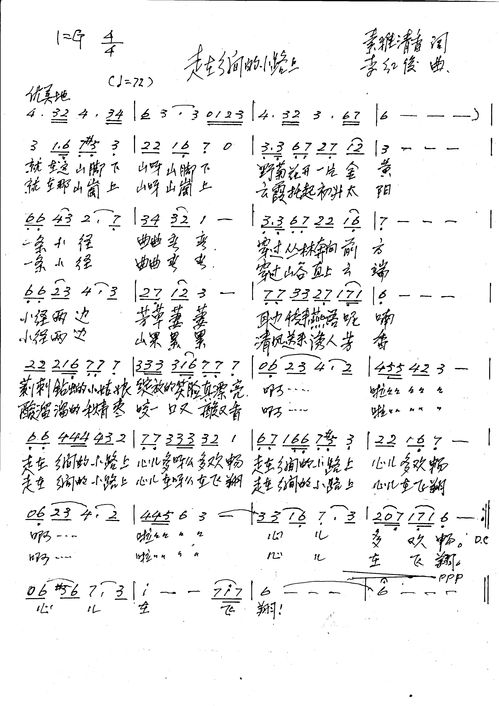 1=G 4/4
走在乡间的小路上
素雅清香 词
李红俊 曲
(♩=72)
优美地
4. 32 4. 34 | 6 3. 3 0123 | 4. 32 3. 67 | 6 - - - )
3 1.6 7#5 3 | 22 16 7 0 | 3.3 67 27 12 | 3 - - -
就在这山脚下 山呀山脚下 野菊花开一片金黄
就在那山岗上 山呀山岗上 云霞托起初升太阳
66 43 2. 7 | 34 32 1 - | 3.3 67 22 16 | 7 - - -
一条小径 曲曲弯弯 穿过丛林奔向前方
一条小径 曲曲弯弯 穿过山谷直上云端
66 23 4. 3 | 27 12 3 - | 77 33 27 171 | 6 - - -
小径两边 芳草萋萋 耳边传来燕语呢喃
小径两边 山果累累 清风送来诱人芳香
22 216 77 7 | 333 316 77 7 | 06 23 4. 2 | 455 42 3 -
菊刺钻出的小姑娘 绽放的笑脸真漂亮 啊…… 啦
酸溜溜的秋青枣 咬一口又酸又香 啊…… 啦
66 444 432 | 77 333 32 1 | 67 166 7#5 3 | 22 16 7 -
走在乡间的小路上 心儿多呀么多欢畅 走在乡间的小路上 心儿多欢畅
走在乡间的小路上 心儿在呀么在飞翔 走在乡间的小路上 心儿在飞翔
06 23 4. 2 | 445 6 3 - | 33 16 7. 3 | 207 171 6 - :|| D.C
啊…… 啦 心儿多欢畅。
啊…… 啦 心儿在飞翔。
ppp
06 #56 7. 3 | i - - 7i7 | 6 - - - | 6 - - - ||
心儿在飞翔!